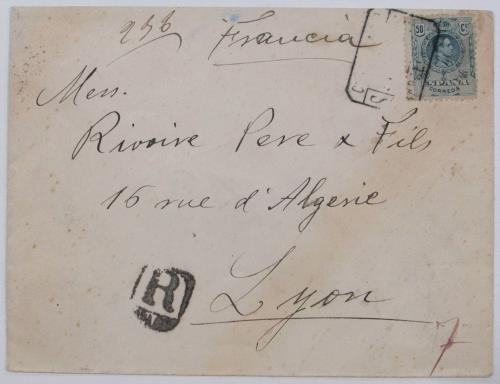 238 Francia
50 Cs
CORREOS
Mess.
Rivoire Pere & Fils
16 rue d'Algerie
R
Lyon
7